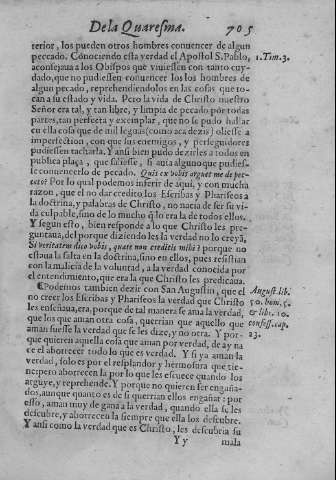 De la Quaresma. 705
terior, los pueden otros hombres conuencer de algun
peccado. Conociendo esta verdad el Apostol S. Pablo, 1.Tim.3.
aconsejaua a los Obispos que viuiessen con tanto cuy-
dado, que no pudiessen conuencer los los hombres de
algun pecado, reprehendiendolos en las cosas que to-
can a su estado y vida. Pero la vida de Christo nuestro
Señor era tal, y tan libre, y limpia de pecado por todas
partes, tan perfecta y exemplar, que no se pudo hallar
en ella cosa que de mil leguas (como aca dezis) oliesse a
imperfection, con que sus enemigos, y perseguidores
pudiessen tacharla. Y ansi bien pudo dezirles a todos en
publica plaça, que saliesse, si auia alguno que pudies-
se conuencerlo de pecado. Quis ex vobis arguet me de pec-
cato? Por lo qual podemos inferir de aqui, y con mucha
razon, que el no dar credito los Escribas y Phariseos a
la doctrina, y palabras de Christo, no nacia de ser su vi-
da culpable, sino de lo mucho que lo era la de todos ellos.
Y segun esto, bien responde a lo que Christo les pre-
guntaua, del porque diziendo les la verdad no lo creyā,
Si veritatem dico vobis, quare non creditis mihi? porque no
estaua la falta en la doctrina, sino en ellos, pues resistian
con la malicia de la voluntad, a la verdad conocida por
el entendimiento, que era la que Christo les predicaua.
¶Podemos tambien dezir con San Augustin, que el August. lib.
no creer los Escribas y Phariseos la verdad que Christo 50. hom. 5.
les enseñaua, era, porque de tal manera se ama la verdad, & lib. 10.
que los que aman otra cosa, querrian que aquello que confess. cap.
aman fuesse la verdad que se les dize, y no otra. Y por- 23.
que quieren aquella cosa que aman por verdad, de ay na
ce el aborrecer todo lo que es verdad. Y si ya aman la
verdad, solo es por el resplandor y hermosura que tie-
ne: pero aborrecen la por lo que les escuece quando los
arguye, y reprehende. Y porque no quieren ser engaña-
dos, aunque quanto es de si querrian ellos engañar: por
esso, aman muy de gana a la verdad, quando ella se les
descubre, y aborrecen la siempre que ella los descubre.
Y ansi como la verdad que es Christo, les descubria su
Yy mala